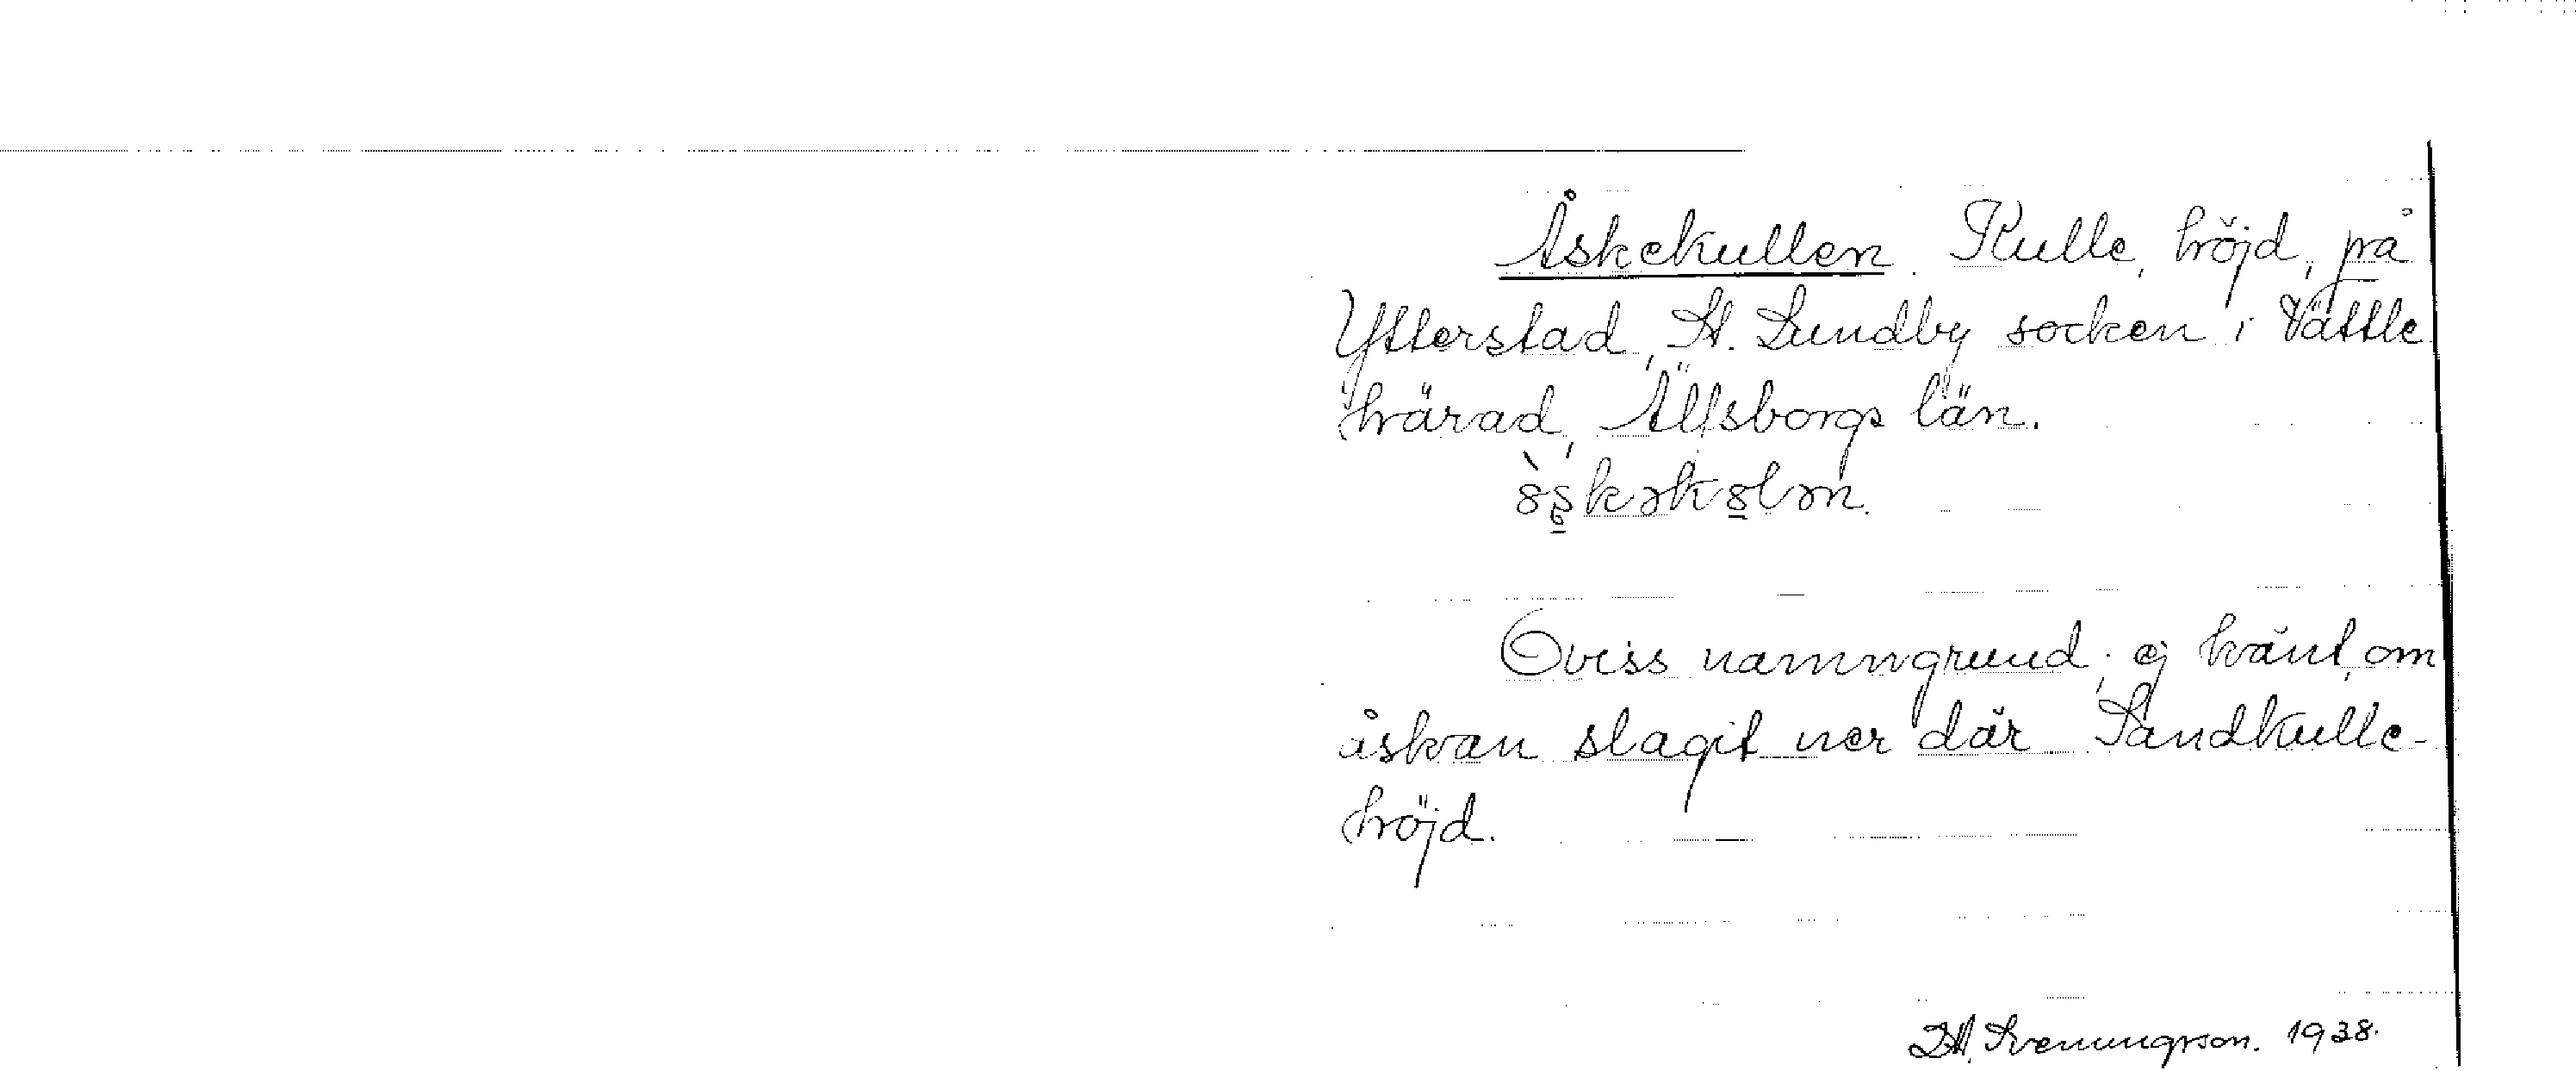 Åskekullen. Kulle, höjd, på
Ytterstad, St. Lundby socken i Vättle
härad, Älfsborgs län.
Oviss namngrund; ej känt, om
åskan slagit ner där. Sandkulle-
höjd.
Svenungsson. 1938.